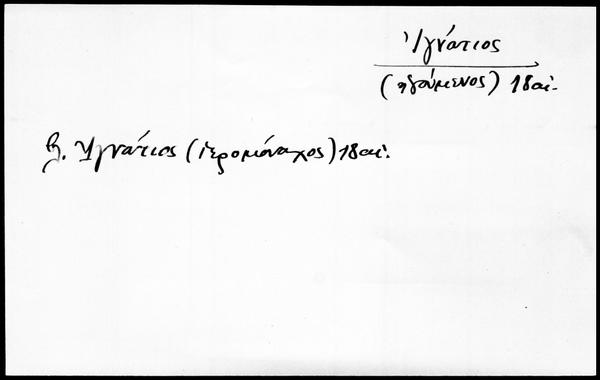 Ἰγνάτιος
(ηγούμενος) 18 αἰ.
βλ. Ἰγνάτιος (ἱερομόναχος) 18 αἰ.